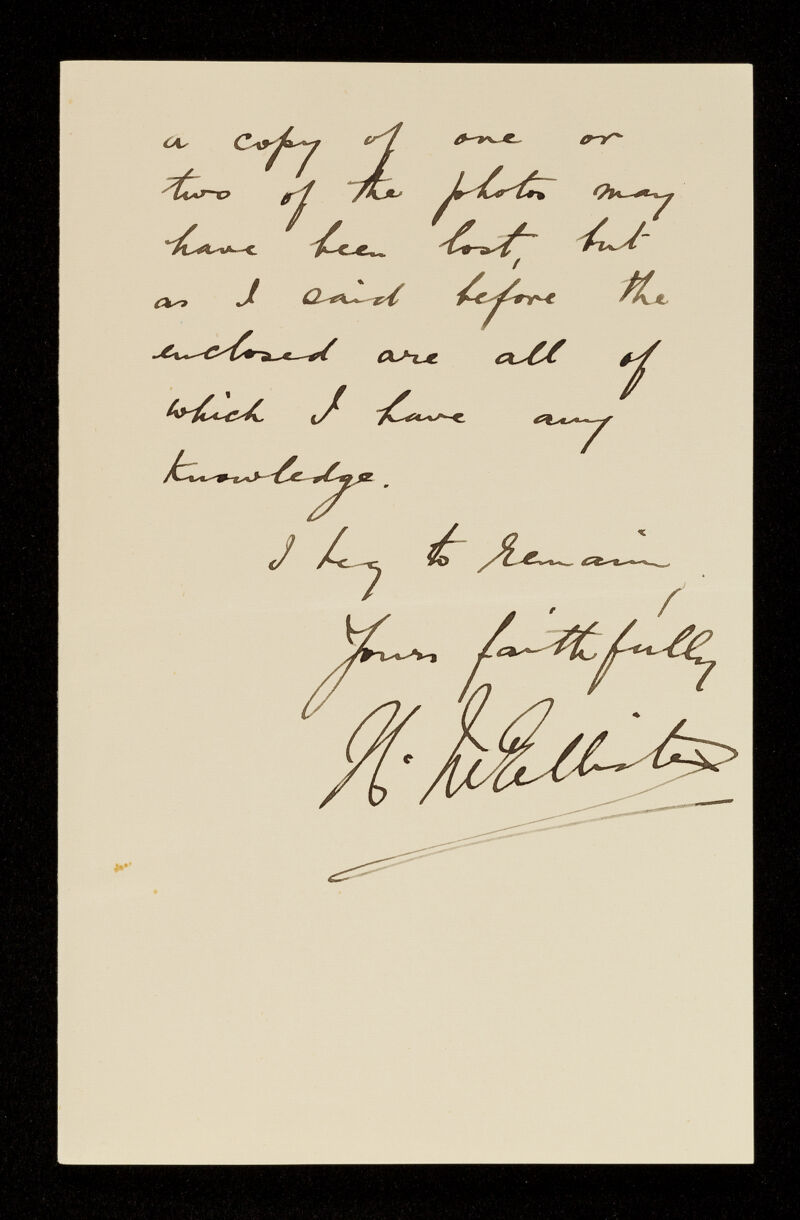 a copy of one or
two of the photos may
have been lost, but
as I said before the
enclosed are all of
which I have any
knowledge.
I beg to remain,
Yours faithfully
H. McEllister